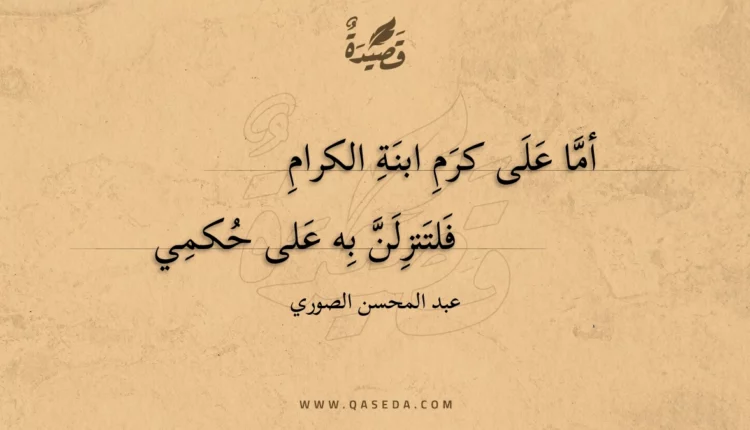 قَصِيْدَةٌ
أمَّا عَلَى كرَمِ ابنَةِ الكرامِ
فَلتَنزِلَنَّ بِه عَلى حُكمِي
عبد المحسن الصوري
WWW.QASEDA.COM